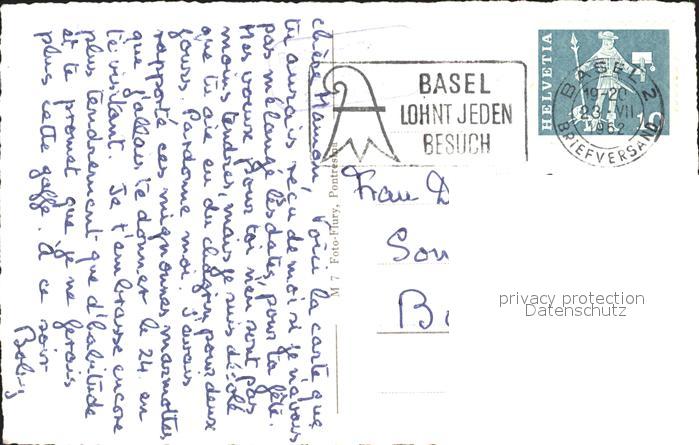 chère Maman, Voici la carte que
tu aurais reçu de moi si je n'avais
pas mélangé les dates, pour ta fête.
Mes voeux pour toi n'en sont pas
moins tendres, mais je suis désolé
que tu aie eu du chagrin pour deux
jours. Pardonne moi. J'avais
rapporté ces mignonnes marmottes
que j'allais te donner le 24 en
te visitant. Je t'embrasse encore
plus tendrement que d'habitude
et te promet que je ne ferais
plus cette gaffe. A ce soir
M 7 Foto-Flury, Pontresina
BASEL
LOHNT JEDEN
BESUCH
HELVETIA
10
BASEL 2
19-20
23 VII
1962
BRIEFVERSAND
Frau D
Son
privacy protection
Datenschutz